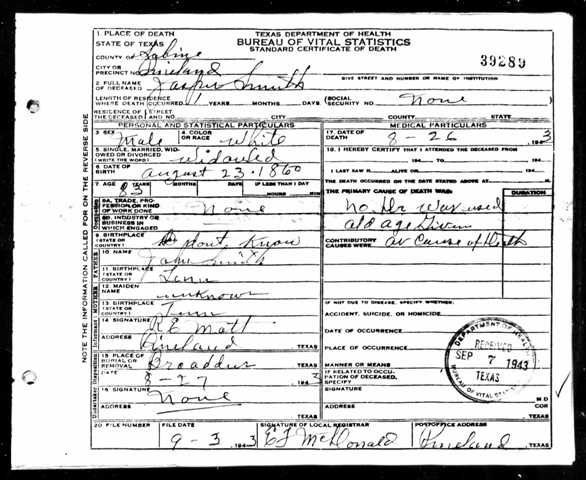 TEXAS DEPARTMENT OF HEALTH
BUREAU OF VITAL STATISTICS
STANDARD CERTIFICATE OF DEATH
39289
1 PLACE OF DEATH
STATE OF TEXAS
COUNTY OF Sabine
CITY OR PRECINCT NO. Pineland
GIVE STREET AND NUMBER OR NAME OF INSTITUTION
2 FULL NAME OF DECEASED Jasper Smith
LENGTH OF RESIDENCE WHERE DEATH OCCURRED YEARS MONTHS DAYS
SOCIAL SECURITY NO. None
RESIDENCE OF THE DECEASED STREET AND NO. CITY COUNTY STATE
PERSONAL AND STATISTICAL PARTICULARS
3 SEX Male
4 COLOR OR RACE White
5 SINGLE, MARRIED, WIDOWED OR DIVORCED (WRITE THE WORD) widowed
6 DATE OF BIRTH August 23-1860
7 AGE 83 YEARS MONTHS DAYS IF LESS THAN 1 DAY
HOURS MIN
8A. TRADE, PROFESSION OR KIND OF WORK DONE None
8B. INDUSTRY OR BUSINESS IN WHICH ENGAGED
9 BIRTHPLACE (STATE OR COUNTRY) Dont Know
10 NAME John Smith
11 BIRTHPLACE (STATE OR COUNTRY) Tenn
12 MAIDEN NAME unknown
13 BIRTHPLACE (STATE OR COUNTRY) Tenn
14 SIGNATURE R E Matt
ADDRESS Pineland TEXAS
15 PLACE OF BURIAL OR REMOVAL Broaddus TEXAS
DATE 8-27 1943
16 SIGNATURE None
ADDRESS TEXAS
MEDICAL PARTICULARS
17. DATE OF DEATH 8-26 1943
18. I HEREBY CERTIFY THAT I ATTENDED THE DECEASED FROM
194 TO 194
I LAST SAW H ALIVE ON 194
THE DEATH OCCURRED ON THE DATE STATED ABOVE AT M.
THE PRIMARY CAUSE OF DEATH WAS: DURATION
No Dr was used
old age Given
CONTRIBUTORY CAUSES WERE: as Cause of Death
IF NOT DUE TO DISEASE, SPECIFY WHETHER:
ACCIDENT, SUICIDE, OR HOMICIDE
DATE OF OCCURRENCE
PLACE OF OCCURRENCE
MANNER OR MEANS
IF RELATED TO OCCUPATION OF DECEASED, SPECIFY
SIGNATURE M D COR
ADDRESS TEXAS
DEPARTMENT OF HEALTH
RECEIVED
SEP 7 1943
TEXAS
BUREAU OF VITAL STATISTICS
20 FILE NUMBER
FILE DATE 9-3 1943
SIGNATURE OF LOCAL REGISTRAR McDonald
POSTOFFICE ADDRESS Pineland TEXAS
NOTE THE INFORMATION CALLED FOR ON THE REVERSE SIDE
FATHER
MOTHER
Informant